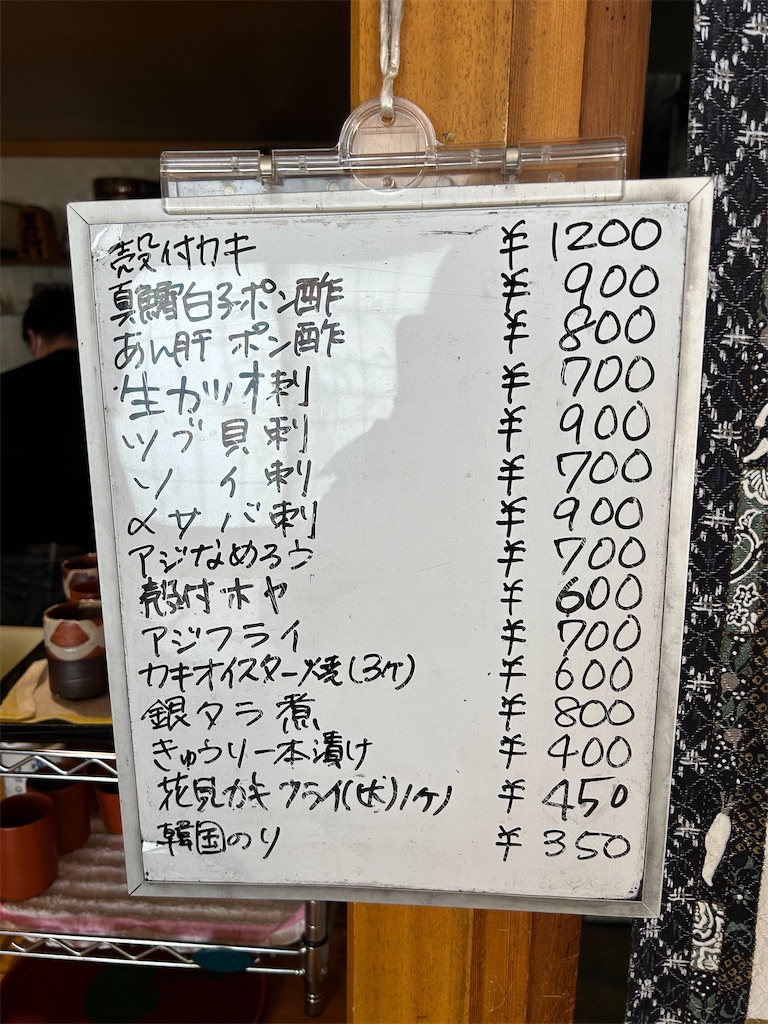 殻付カキ ¥1200
真鱈白子ポン酢 ¥900
あん肝 ポン酢 ¥800
生カツオ刺 ¥700
ツブ貝刺 ¥900
ソイ刺 ¥700
〆サバ刺 ¥900
アジなめろう ¥700
殻付ホヤ ¥600
アジフライ ¥700
カキオイスター焼(3ケ) ¥600
銀タラ煮 ¥800
きゅうり一本漬け ¥400
花見カキフライ(大)1ケ ¥450
韓国のり ¥350